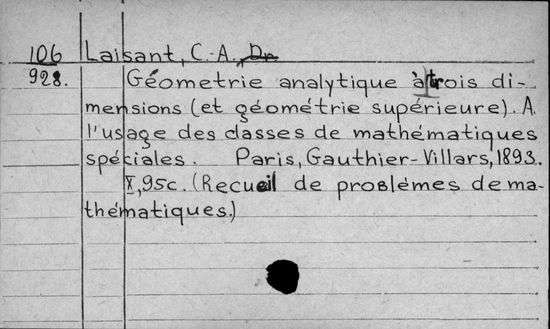 106 Laisant, C.-A., Dr.
928. Géometrie analytique à trois di-
mensions (et géométrie supérieure). A
l'usage des classes de mathématiques
spéciales. Paris, Gauthier-Villars, 1893.
X, 95c. (Recueil de problèmes de ma-
thématiques.)